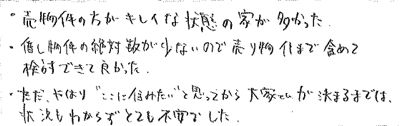 ・売物件の方がキレイな状態の家が多かった.
・貸し物件の絶対数が少ないので売り物件まで含めて
検討できて良かった.
・ただ、やはり"ここに住みたい"と思ってから大家さんが決まるまでは、
状況もわからずとても不安でした.